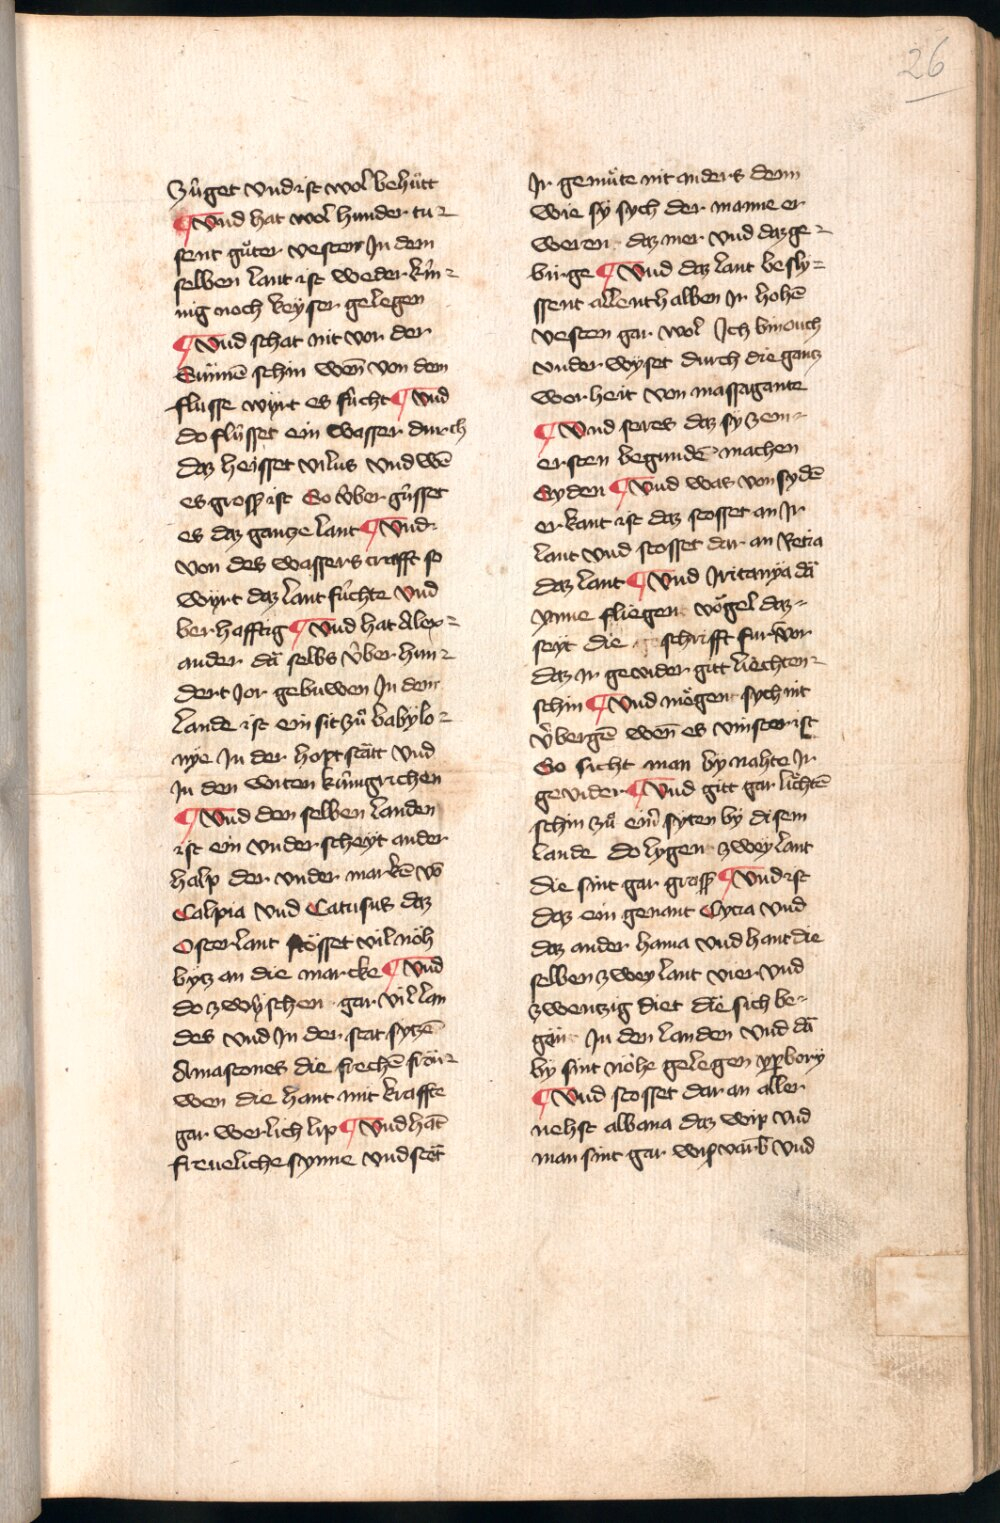 26
zůget vnd ist wol behuͤtt
¶ Vnd hat wol hunder tu-
sent guͦter vesten Jn dem
selben lant ist weder kuͤn-
nig noch keyser gelegen
¶ Vnd schat nit von der
Sunnē schin weñ von dem
flusse wyrt es fuͤcht ¶ Vnd
do fluͤsset ein wasser durch
daz heÿsset vilus vnd wē
es groß ist So vͤber guͤsset
es daz gancze lant ¶ Vnd
von des wassers crafft so
wyrt daz lant fuͤchte vnd
berhafftig ¶ Vnd hat Alex-
ander dā selbs vͤber hun-
dert Jor gebuwen Jn dem
lande ist ein sit zuͦ babÿlo-
nÿe Jn der hoptstātt vnd
Jn den witen kuͤnigrichen
¶ Vnd den selben landen
ist ein vnderscheyt ander
halp der vnder markē vō
Calpia vnd Catusus daz
Osterlant stösset vil nöh
bytz an die marcke ¶ Vnd
do zwÿschen gar vil lan
des vnd Jn der stat sytzē
Amastones die frechē frau-
wen die hant mit kraffte
gar werlich lip ¶ Vnd hāt
freueliche synne vnd stāt
Jr gemuͤte nit anders denn
wie sÿ sych der manne er
weren daz mer vnd daz ge-
birge ¶ Vnd daz lant besly-
ssent allenthalben Jr hohē
vesten gar wol Jch bin ouch
vnderwyset durch die gantz
worheit von massagante
¶ Vnd seres daz sÿ zem-
ersten begundē machen
Syden ¶ Vnd was von sydē
erkant ist daz stosset an Jr
lant vnd stosset dar an Retia
daz lant ¶ Vnd Jritanÿa dā
ynne fliegen voͤgel daz-
seyt die schrifft fur vor
daz Jr gevider gitt liechten-
schin ¶ Vnd moͤgen sych nit
vͤbergē weñ es vinster ist
So sicht man by nahte Jr
gevider ¶ Vnd gitt gar liechtē
schin zuͦ einr syten by disem
lande do lygen zwey lant
die sint gar groß ¶ Vnd ist
daz ein genant Cycia vnd
daz ander hama vnd hant die
selben zwey lant vier vnd
zwentzig diet die sich be-
gān Jn den landen vnd dā
by sint nöhe gelegen ypbory
¶ Vnd stosset dar an aller
nehst albana daz wip vnd
man sint gar wiß varb vnd